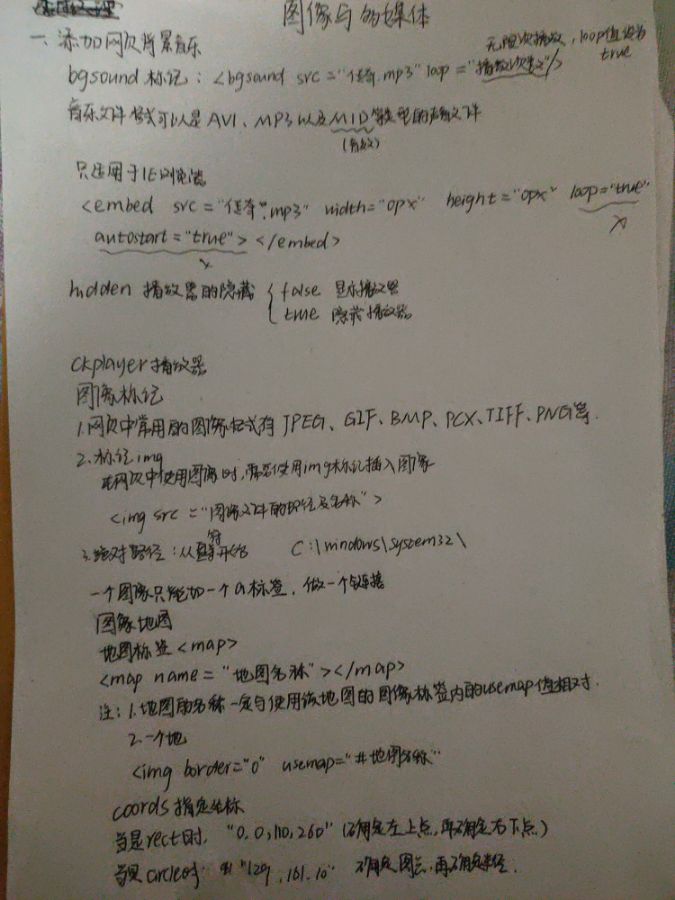 图像与多媒体
一、添加网页背景音乐
无限次播放，loop值设为
true
bgsound标记：<bgsound src="任奇.mp3" loop="播放次数"/>
音乐文件格式可以是AVI、MP3以及MID等类型的声音文件
(有效)
只适用于IE浏览器
<embed src="任奇.mp3" width="0px" height="0px" loop="true"
autostart="true"></embed>
hidden 播放器的隐藏 { false 显示播放器
true 隐藏播放器
ckplayer播放器
图像标记
1.网页中常用的图像格式有JPEG、GIF、BMP、PCX、TIFF、PNG等.
2.标记img
在网页中使用图像时,需要使用img标记插入图像
<img src="图像文件的路径及名称">
3.绝对路径：从盘符开始 C:\windows\system32\
一个图像只能加一个a标签,做一个链接
图像地图
地图标签<map>
<map name="地图名称"></map>
注：1.地图的名称一定与使用该地图的图像标签内的usemap值相对.
2.一个地
<img border="0" usemap="#地图名称"
coords指定坐标
当是rect时, "0,0,110,260" (确定左上点,再确定右下点)
当是circle时 "129,161,10" 确定圆点,再确定半径.